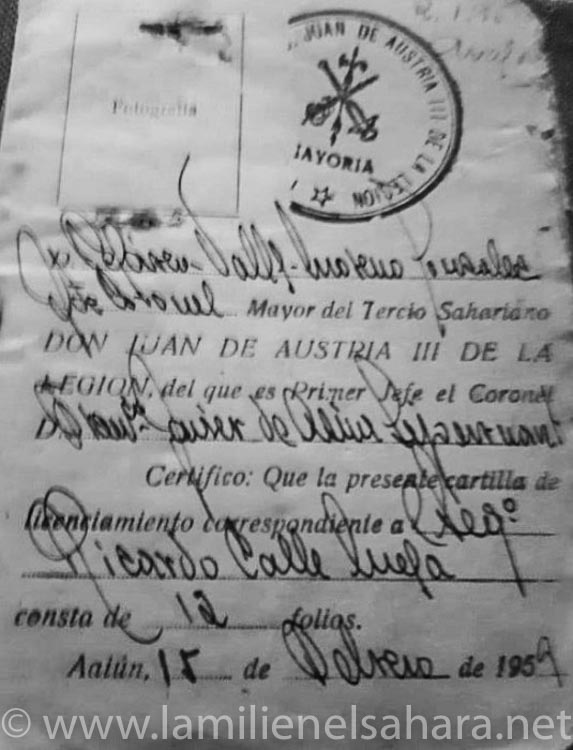 Fotografía
JUAN DE AUSTRIA III DE LA LEGION
MAYORIA
Moreno Gonzalez
Coronel Mayor del Tercio Sahariano
DON JUAN DE AUSTRIA III DE LA
LEGION, del que es Primer Jefe el Coronel
D. Javier de
Certifico: Que la presente cartilla de
licenciamiento correspondiente a
Ricardo Calle
consta de 12 folios.
Aaiún, 15 de Febrero de 1959
© www.lamilienelsahara.net